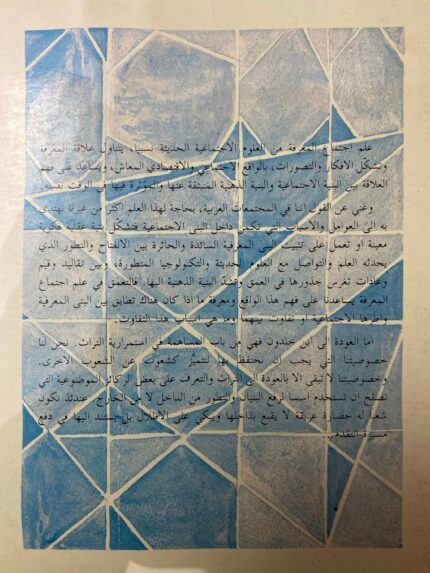 علم اجتماع المعرفة من العلوم الاجتماعية الحديثة نسبياً، يتناول علاقة المعرفة
وتشكّل الافكار والتصورات، بالواقع الاجتماعي والاقتصادي المعاش، ويساعد على فهم
العلاقة بين البنية الاجتماعية والبنية الذهنية المنبثقة عنها والمؤثرة فيها في الوقت نفسه.
وغني عن القول اننا في المجتمعات العربية، بحاجة لهذا العلم اكثر من غيرنا
به الى العوامل والاسباب التي تكمن داخل البنى الاجتماعية فتشكّل بنية عقلية فكرية
معينة او تعمل على تثبيت البنى المعرفية السائدة والحائرة بين الانفتاح والتطور الذي
يحدثه العلم والتواصل مع العلوم الحديثة والتكنولوجيا المتطورة، وبين تقاليد وقيم
وعادات تغرس جذورها في العمق البنية الذهنية اليها. فالتعمق في علم اجتماع
المعرفة يساعدنا على فهم هذا الواقع ومعرفة ما اذا كان هناك تطابق بين البنى المعرفية
واطرها الاجتماعية او تفاوت بينهما، وما هي اسباب هذا التفاوت.
اما العودة الى ابن خلدون فهي من باب المساهمة في استمرارية التراث. نحن لنا
خصوصيتنا التي يجب ان نحتفظ بها لنتميّز كشعوب عن الشعوب الاخرى.
وخصوصيتنا لا تبقى الا بالعودة الى التراث والتعرف على بعض الركائز الموضوعية التي
تصلح ان تستخدم اسساً لرفع البنيان والتطور من الداخل لا من الخارج عندئذ نكون
شعباً له حضارة عريقة لا يقبع بداخلها ويبكي على الاطلال بل يستند اليها في دفع
مسيرة التقدم.